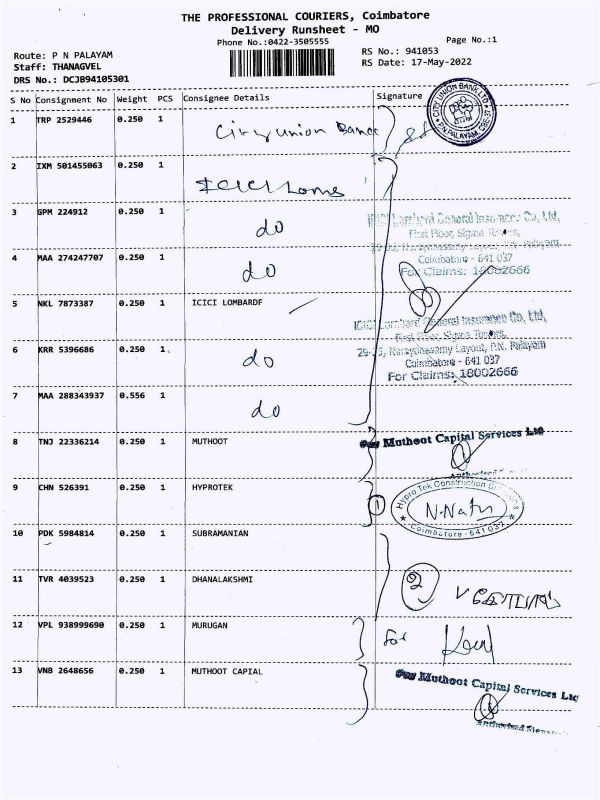 THE PROFESSIONAL COURIERS, Coimbatore
Delivery Runsheet - MO
Phone No.:0422-3505555
Page No.:1
Route: P N PALAYAM
RS No.: 941053
Staff: THANAGVEL
RS Date: 17-May-2022
DRS No.: DCJB94105301
S No Consignment No Weight PCS Consignee Details Signature
CITY UNION BANK LTD
P.N.PALAYAM, CBE-37
1 TRP 2529446 0.250 1 City union Bank
2 IXM 501455063 0.250 1 ICICI Lom
3 GPM 224912 0.250 1 do
ICICI Lombard General Insurance Co. Ltd,
First Floor, Sigma Towers,
Coimbatore - 641 037
For Claims: 18002666
4 MAA 274247707 0.250 1 do
5 NKL 7873387 0.250 1 ICICI LOMBARDF
ICICI Lombard General Insurance Co, Ltd,
First Floor, Sigma Towers,
Narayanasamy Layout, P.N. Palayam
Coimbatore - 641 037
For Claims: 18002666
6 KRR 5396686 0.250 1 do
7 MAA 288343937 0.556 1 do
8 TNJ 22336214 0.250 1 MUTHOOT
For Muthoot Capital Services Ltd
9 CHN 526391 0.250 1 HYPROTEK
1
Hypro Tek Construction
N.Natn
Coimbatore - 641 037
10 PDK 5984814 0.250 1 SUBRAMANIAN
11 TVR 4039523 0.250 1 DHANALAKSHMI
2
12 VPL 938999690 0.250 1 MURUGAN
for
13 VNB 2648656 0.250 1 MUTHOOT CAPIAL
For Muthoot Capital Services Ltd